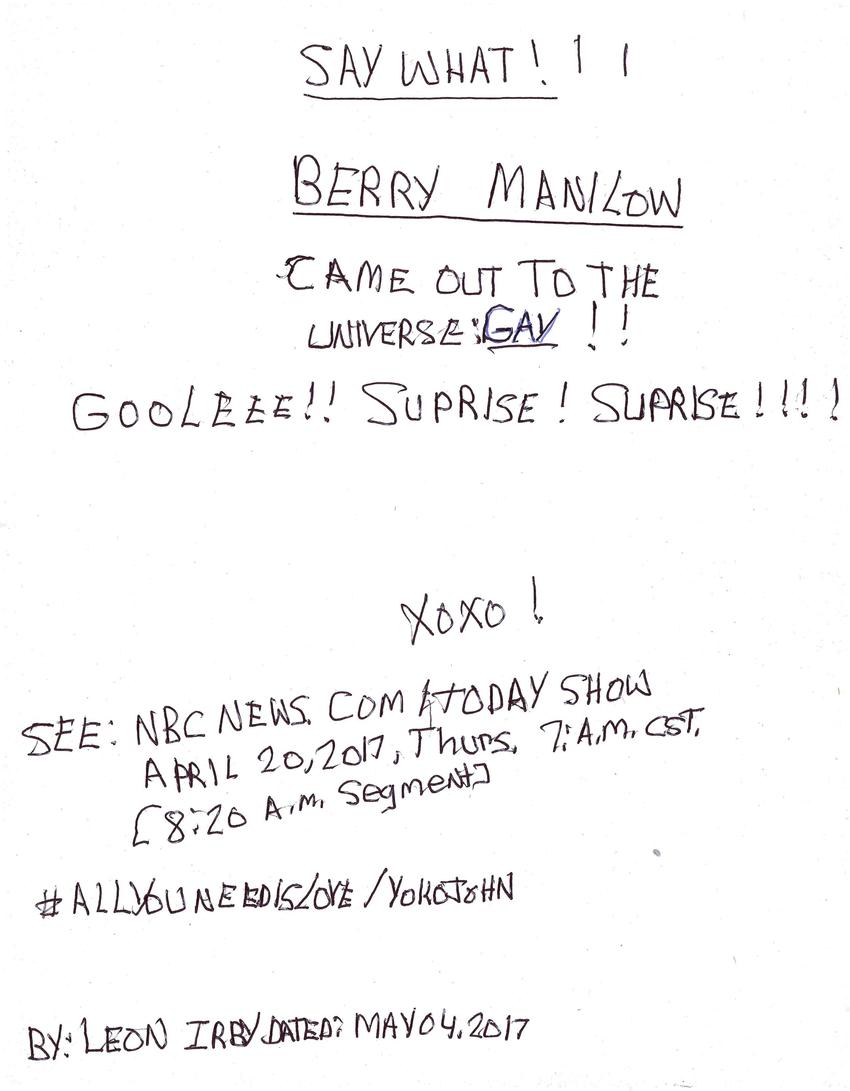 SAY WHAT! ! !
BERRY MANILOW
CAME OUT TO THE
UNIVERSE: GAY !!
GOOLEEE!! SUPRISE! SUPRISE!!!!
XOXO!
SEE: NBC NEWS. COM /TODAY SHOW
APRIL 20, 2017, Thurs. 7: A.M. CST.
[8:20 A.M. Segment]
#ALLYOUNEEDISLOVE/YOKOJOHN
BY: LEON IRBY DATED: MAY 04, 2017